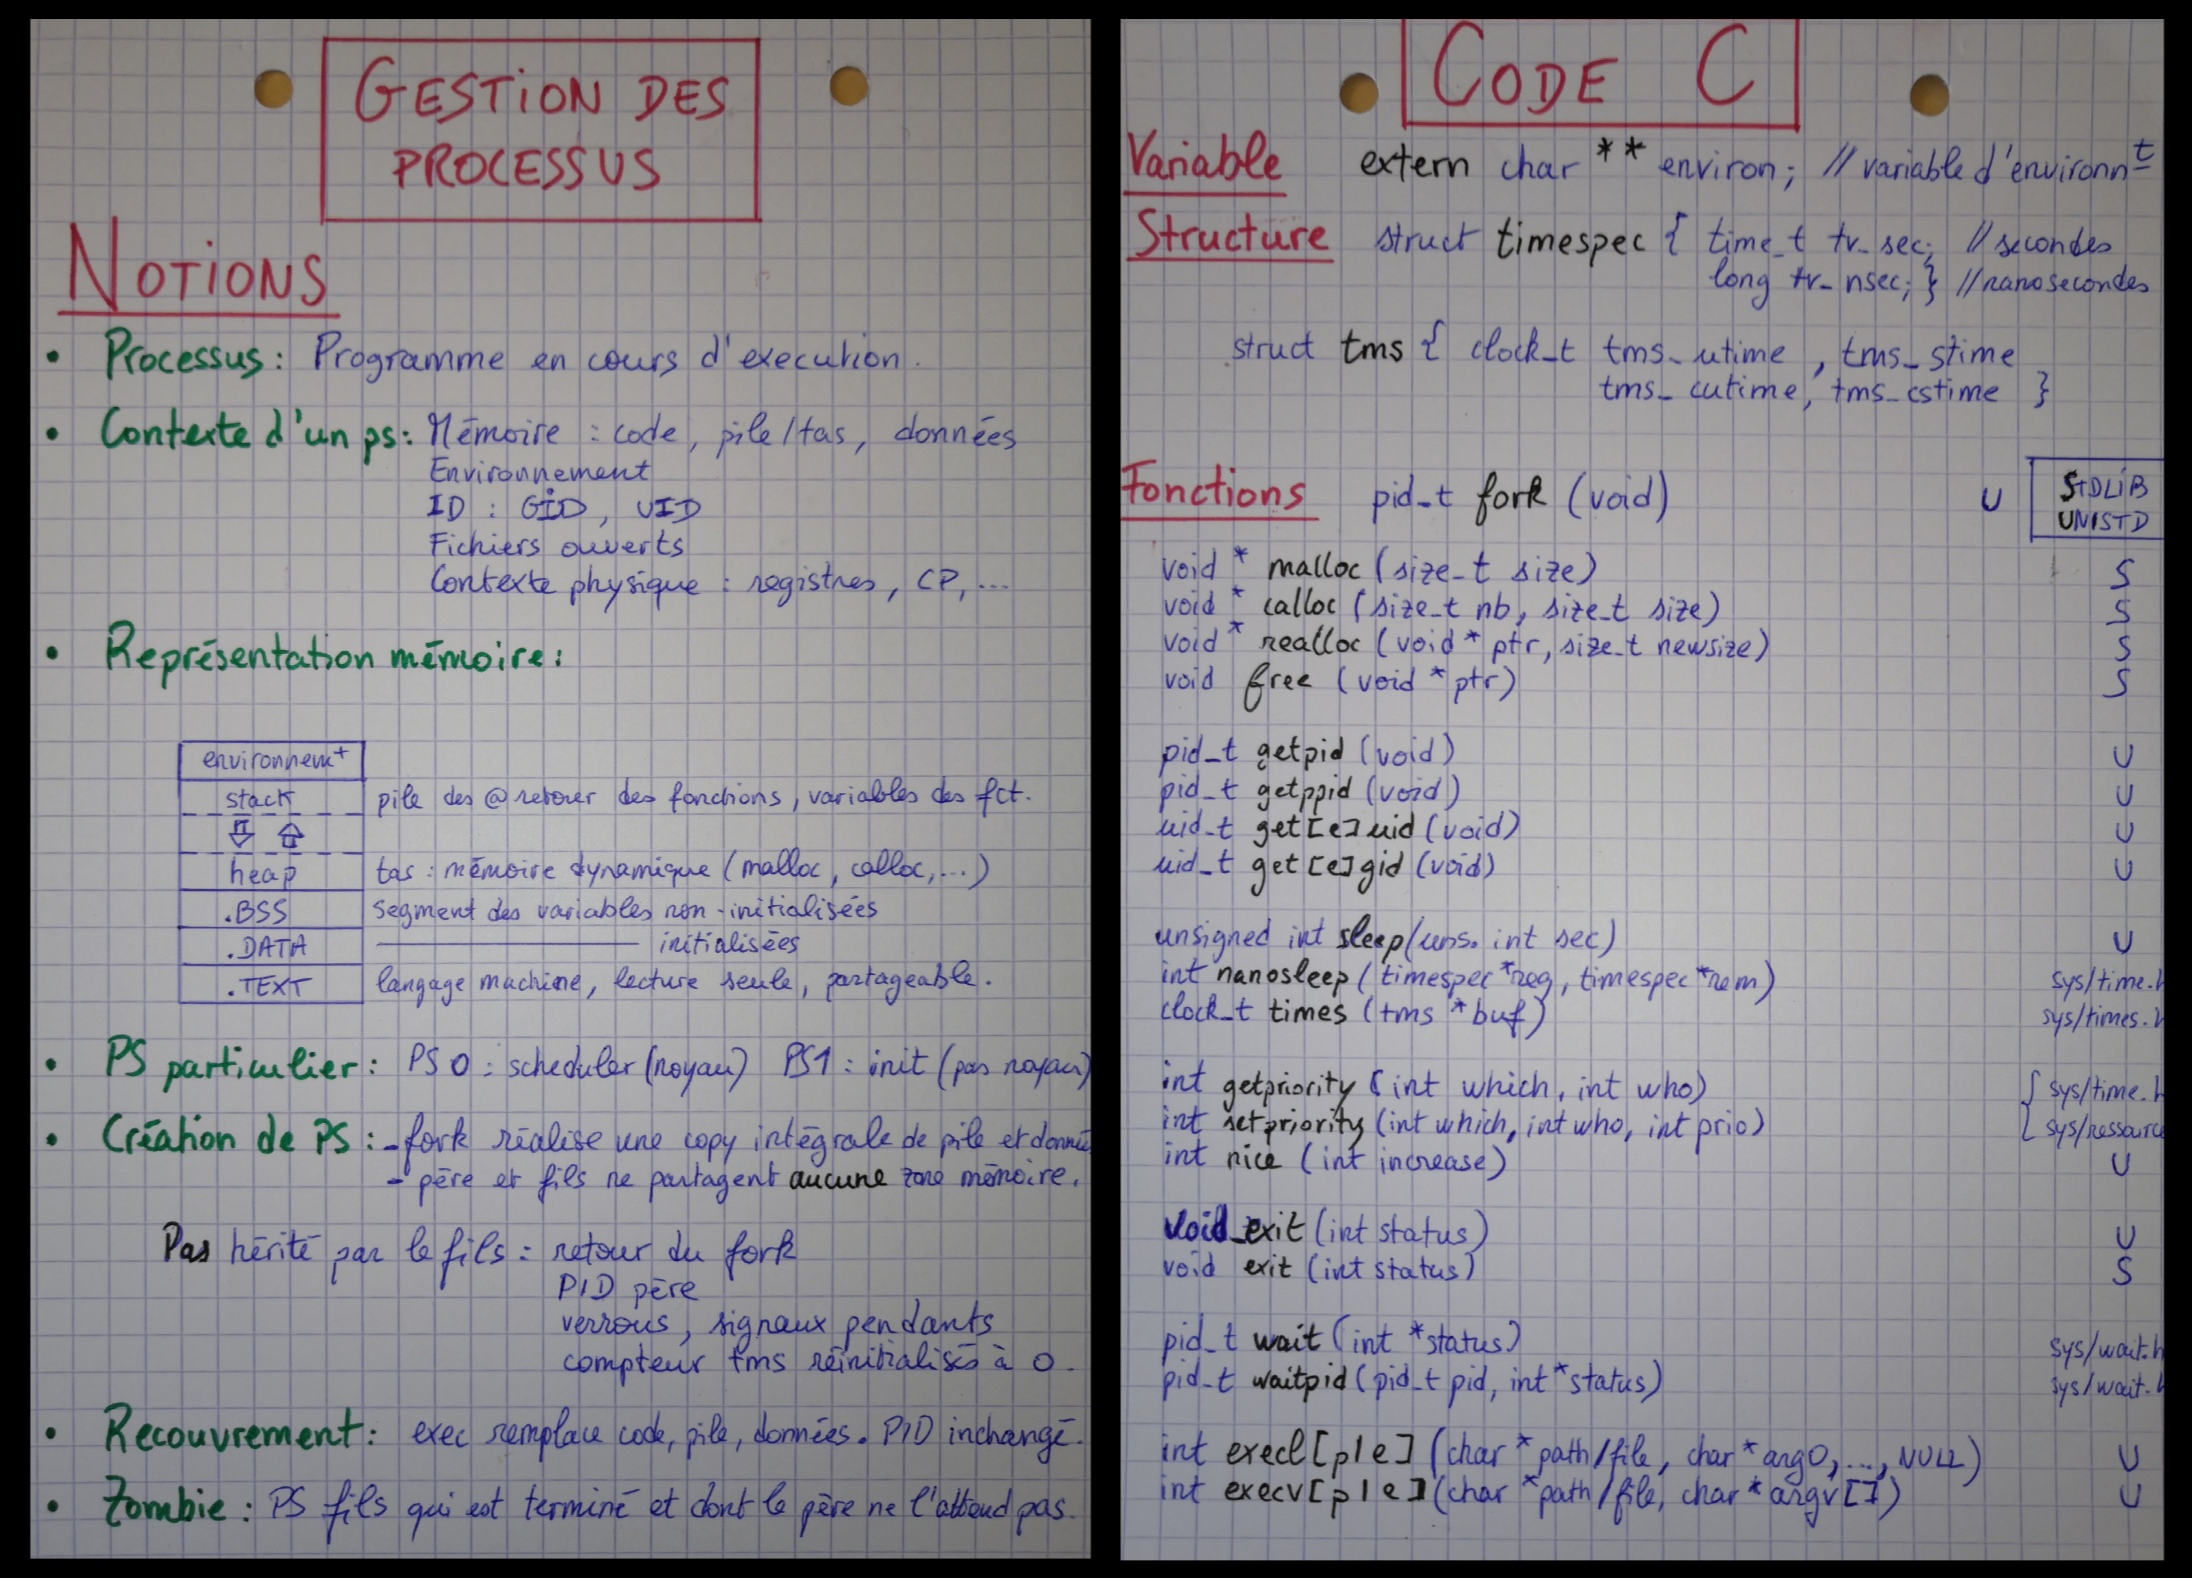 GESTION DES
PROCESSUS
NOTIONS
• Processus : Programme en cours d'execution.
• Contexte d'un ps : Mémoire : code, pile/tas, données
Environnement
ID : GID, UID
Fichiers ouverts
Contexte physique : registres, CP, ...
• Représentation mémoire :
environnem^t
stack pile des @ retour des fonctions, variables des fct.
heap tas : mémoire dynamique (malloc, calloc, ...)
.BSS segment des variables non-initialisées
.DATA ———— initialisées
.TEXT langage machine, lecture seule, partageable.
• PS particulier : PS 0 : scheduler (noyau) PS1 : init (pas noyau)
• Création de PS : - fork réalise une copy intégrale de pile et donné
- père et fils ne partagent aucune zone mémoire.
Pas hérité par le fils : retour du fork
PID père
verrous, signaux pendants
compteur tms réinitialisés à 0.
• Recouvrement : exec remplace code, pile, données. PID inchangé.
• Zombie : PS fils qui est terminé et dont le père ne l'attend pas.
CODE C
Variable extern char ** environ; // variable d'environn^t
Structure struct timespec { time_t tv_sec; // secondes
long tv_nsec; } // nanosecondes
struct tms { clock_t tms_utime , tms_stime
tms_cutime, tms_cstime }
STDLIB
UNISTD
Fonctions pid_t fork (void) U
void * malloc (size_t size) S
void * calloc (size_t nb, size_t size) S
void * realloc (void * ptr, size_t newsize) S
void free (void * ptr) S
pid_t getpid (void) U
pid_t getppid (void) U
uid_t get[e]uid (void) U
uid_t get[e]gid (void) U
unsigned int sleep (uns. int sec) U
int nanosleep (timespec *req, timespec *rem) sys/time.h
clock_t times (tms *buf) sys/times.h
int getpriority (int which, int who) { sys/time.h
int setpriority (int which, int who, int prio) sys/ressource
int nice (int increase) U
void _exit (int status) U
void exit (int status) S
pid_t wait (int *status) sys/wait.h
pid_t waitpid (pid_t pid, int *status) sys/wait.h
int execl[p|e] (char *path/file, char *arg0, ..., NULL) U
int execv[p|e] (char *path/file, char *argv[]) U